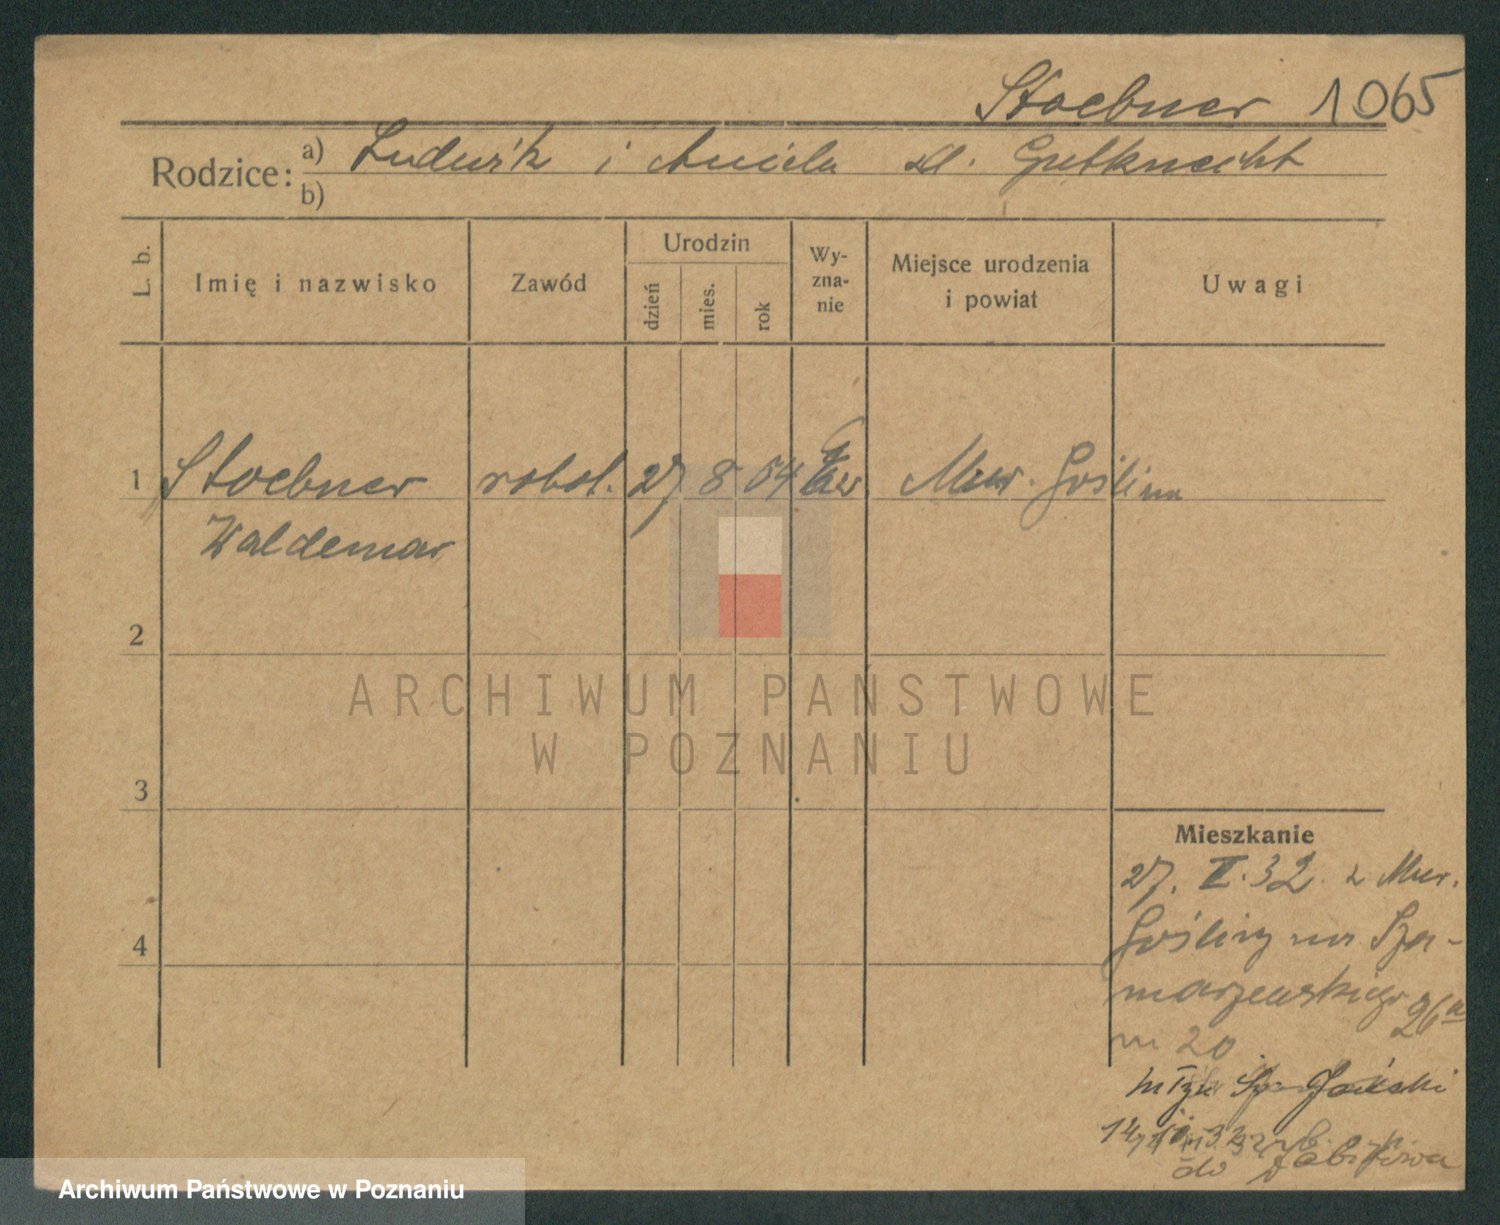 Stoebner 1065
Rodzice: a) Ludwik i Aniela zd. Gutknecht
b)
L. b.
Imię i nazwisko
Zawód
Urodzin
dzień
mies.
rok
Wy-
zna-
nie
Miejsce urodzenia
i powiat
Uwagi
1 Stoebner robot. 27 8 04 Ew Mur. Goślina
Waldemar
2
3
4
Mieszkanie
27. II. 32. z Mur.
Gośliny na Sza-
marzewskiego 26a
m 20
młyn
do Żabikowa
ARCHIWUM PAŃSTWOWE
W POZNANIU
Archiwum Państwowe w Poznaniu